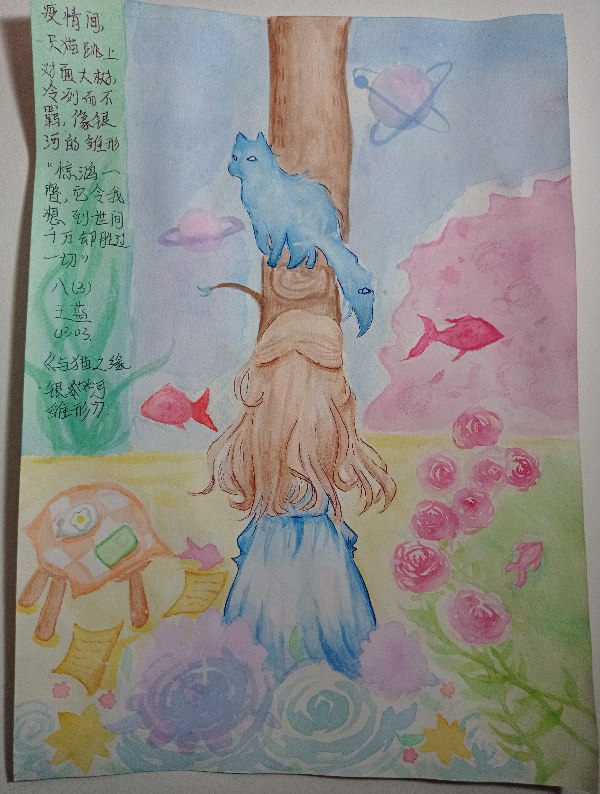 疫情间,
一只猫跳上
对面大树,
冷冽而不
羁,像银
河的雏形
"惊鸿一
瞥,它令我
想到世间
千万却胜过
一切"
八(3)
王燕
03.03.
《与猫之缘
银河
雏形》